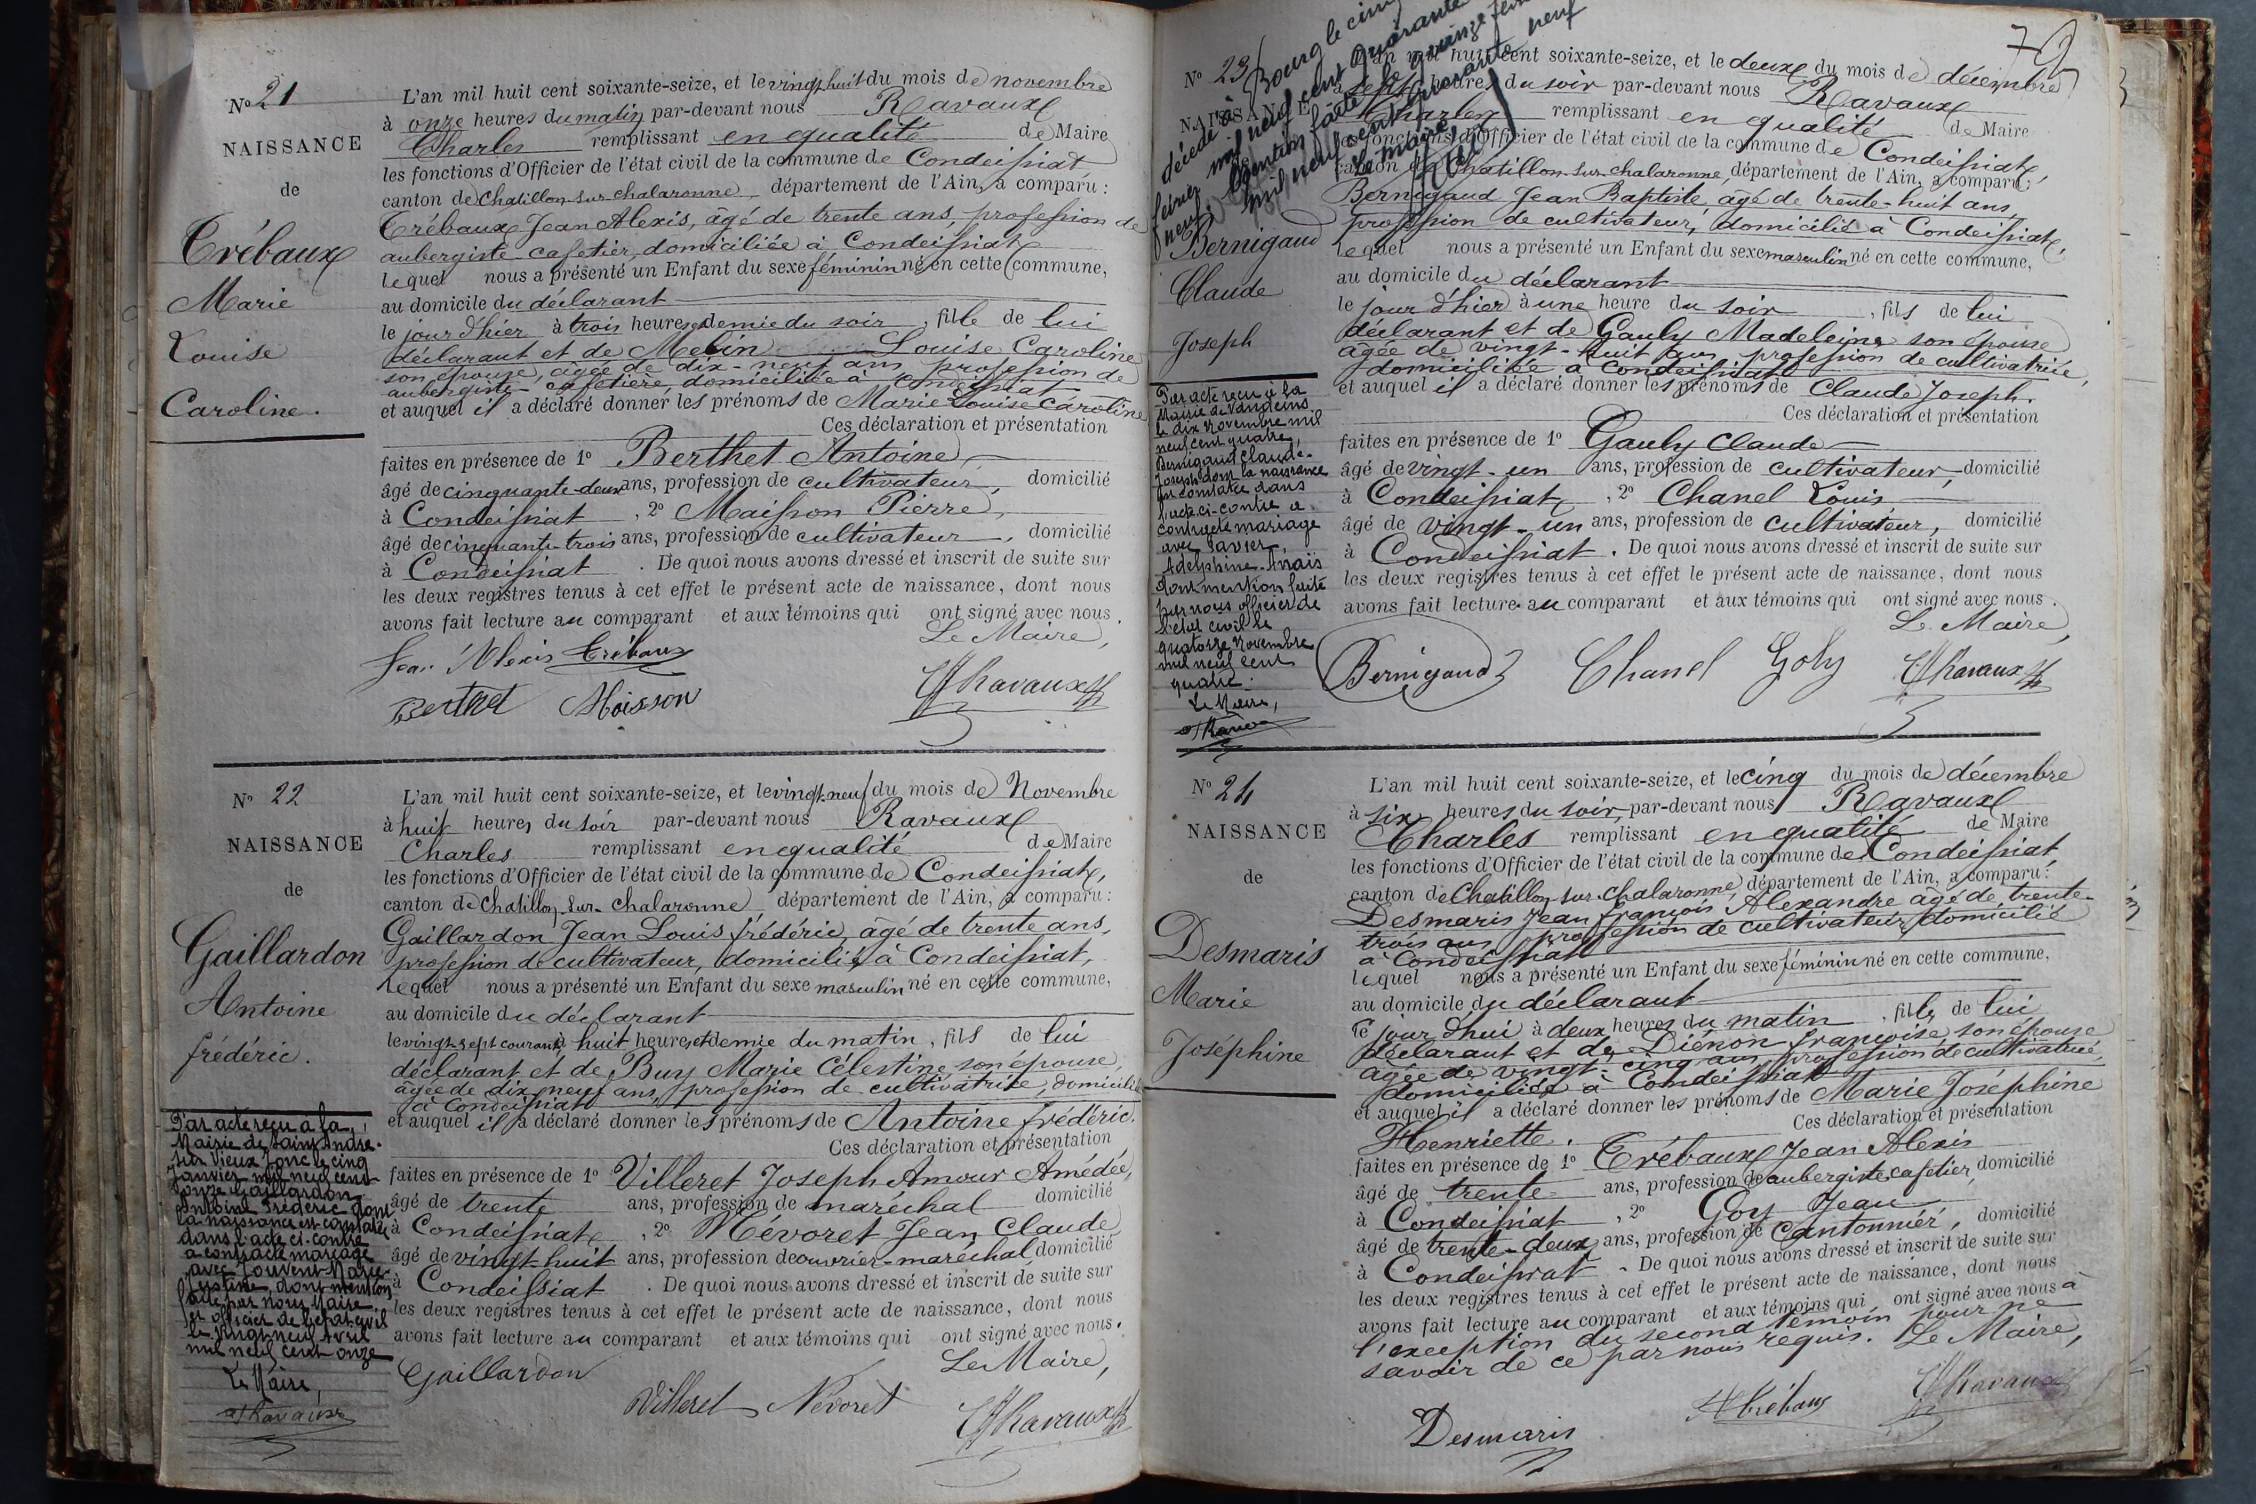 N° 21
NAISSANCE
de
Trébaux
Marie
Louise
Caroline.
L'an mil huit cent soixante-seize, et le vingt huit du mois de novembre
à onze heures du matin par-devant nous Ravaux
Charles remplissant en qualité de Maire
les fonctions d'Officier de l'état civil de la commune de Condeissiat
canton de Chatillon-sur-chalaronne département de l'Ain, a comparu :
Trébaux Jean Alexis, âgé de trente ans, profession de
aubergiste-cafetier, domiciliée à Condeissiat
lequel nous a présenté un Enfant du sexe féminin né en cette commune,
au domicile du déclarant
le jour d'hier à trois heures et demie du soir, fille de lui
déclarant et de Melin Louise Caroline
son épouse, âgée de dix-neuf ans, profession de
aubergiste-cafetière, domiciliée à Condeissiat
et auquel il a déclaré donner les prénoms de Marie Louise Caroline
Ces déclaration et présentation
faites en présence de 1° Berthet Antoine
âgé de cinquante-deux ans, profession de cultivateur, domicilié
à Condeissiat, 2° Maisson Pierre,
âgé de cinquante-trois ans, profession de cultivateur, domicilié
à Condeissiat. De quoi nous avons dressé et inscrit de suite sur
les deux registres tenus à cet effet le présent acte de naissance, dont nous
avons fait lecture au comparant et aux témoins qui ont signé avec nous.
Le Maire,
Jean Alexis Trébaux
Berthet Moisson Ravaux
N° 22
NAISSANCE
de
Gaillardon
Antoine
frédéric.
Par acte reçu à la
Mairie de Saint André-
sur Vieux Jonc le cinq
Janvier mil neuf cent
onze Gaillardon
Antoine Frédéric dont
la naissance est constatée
dans l'acte ci-contre
a contracté mariage
avec Jouvent Marie-
dont mention
faite par nous Maire
officier de l'état civil
le vingt neuf Avril
mil neuf cent onze
Le Maire,
Ravaux
L'an mil huit cent soixante-seize, et le vingt-neuf du mois de Novembre
à huit heures du soir par-devant nous Ravaux
Charles remplissant en qualité de Maire
les fonctions d'Officier de l'état civil de la commune de Condeissiat,
canton de Chatillon-sur-chalaronne département de l'Ain, a comparu :
Gaillardon Jean Louis frédéric, âgé de trente ans,
profession de cultivateur, domicilié à Condeissiat,
lequel nous a présenté un Enfant du sexe masculin né en cette commune,
au domicile du déclarant
le vingt-sept courant à huit heures et demie du matin, fils de lui
déclarant et de Buy Marie Célestine son épouse,
âgée de dix neuf ans, profession de cultivatrice, domiciliée
à Condeissiat
et auquel il a déclaré donner les prénoms de Antoine frédéric.
Ces déclaration et présentation
faites en présence de 1° Villeret Joseph Amour Amédée,
âgé de trente ans, profession de maréchal domicilié
à Condeissiat, 2° Névoret Jean Claude
âgé de vingt-huit ans, profession de ouvrier-maréchal domicilié
à Condeissiat. De quoi nous avons dressé et inscrit de suite sur
les deux registres tenus à cet effet le présent acte de naissance, dont nous
avons fait lecture au comparant et aux témoins qui ont signé avec nous.
Le Maire,
Gaillardon
Villeret Névoret Ravaux
décédé à Bourg le cinq
février mil neuf cent quarante
neuf. Mention faite le quinze février
mil neuf cent quarante neuf
Le maire
N° 23
NAISSANCE
Bernigaud
Claude
Joseph
Par acte reçu à la
Mairie de Vandeins
le dix Novembre mil
neuf cent quatre,
Bernigaud Claude-
Joseph dont la naissance
est constatée dans
l'acte ci-contre a
contracté mariage
avec Savier,
Adelphine-Anaïs
Dont mention faite
par nous officier de
l'état civil le
quatorze Novembre
mil neuf cent
quatre.
Le Maire,
Ravaux
L'an mil huit cent soixante-seize, et le deux du mois de décembre
à sept heures du soir par-devant nous Ravaux
Charles remplissant en qualité de Maire
les fonctions d'Officier de l'état civil de la commune de Condeissiat,
canton de Chatillon-sur-chalaronne, département de l'Ain, a comparu :
Bernigaud Jean Baptiste, âgé de trente-huit ans,
profession de cultivateur, domicilié à Condeissiat,
lequel nous a présenté un Enfant du sexe masculin né en cette commune,
au domicile du déclarant
le jour d'hier à une heure du soir, fils de lui
déclarant et de Gauly Madeleine son épouse
âgée de vingt-huit ans, profession de cultivatrice,
domiciliée à Condeissiat
et auquel il a déclaré donner les prénoms de Claude Joseph.
Ces déclaration et présentation
faites en présence de 1° Gauly Claude
âgé de vingt-un ans, profession de cultivateur, domicilié
à Condeissiat, 2° Chanel Louis
âgé de vingt-un ans, profession de cultivateur, domicilié
à Condeissiat. De quoi nous avons dressé et inscrit de suite sur
les deux registres tenus à cet effet le présent acte de naissance, dont nous
avons fait lecture au comparant et aux témoins qui ont signé avec nous.
Le Maire,
Bernigaud Chanel Goly Ravaux
N° 24
NAISSANCE
de
Desmaris
Marie
Joséphine
L'an mil huit cent soixante-seize, et le cinq du mois de décembre
à six heures du soir, par-devant nous Ravaux
Charles remplissant en qualité de Maire
les fonctions d'Officier de l'état civil de la commune de Condeissiat,
canton de Chatillon-sur-chalaronne, département de l'Ain, a comparu :
Desmaris Jean françois Alexandre âgé de trente-
trois ans, profession de cultivateur, domicilié
à Condeissiat
lequel nous a présenté un Enfant du sexe féminin né en cette commune,
au domicile du déclarant
ce jour d'hui à deux heures du matin, fille de lui
déclarant et de Diénon françoise, son épouse
âgée de vingt-cinq ans, profession de cultivatrice,
domiciliée à Condeissiat
et auquel il a déclaré donner les prénoms de Marie Joséphine
Ces déclaration et présentation
Henriette.
faites en présence de 1° Trébaux Jean Alexis
âgé de trente ans, profession de aubergiste cafetier, domicilié
à Condeissiat, 2° Goy Jean
âgé de trente-deux ans, profession de cantonnier, domicilié
à Condeissiat. De quoi nous avons dressé et inscrit de suite sur
les deux registres tenus à cet effet le présent acte de naissance, dont nous
avons fait lecture au comparant et aux témoins qui ont signé avec nous à
l'exception du second témoin pour ne
savoir de ce par nous requis. Le Maire,
Desmaris Trébaux Ravaux